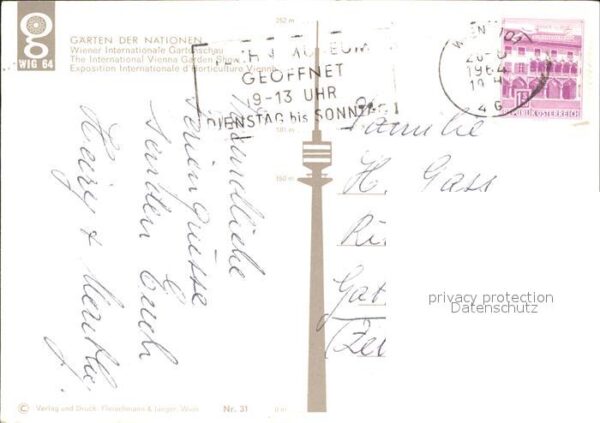 WIG 64
GÄRTEN DER NATIONEN
Wiener Internationale Gartenschau
The International Vienna Garden Show
Exposition Internationale d'Horticulture Vienne
252 m
181 m
150 m
0 m
MUSEUM
GEÖFFNET
9-13 UHR
DIENSTAG bis SONNTAG
WIEN
1964
4 G
REPUBLIK ÖSTERREICH
Freundliche
Feriengrüsse
senden Euch
Heinz +
Familie
H. Gass
Ri
privacy protection
Datenschutz
© Verlag und Druck: Fleischmann & Jaeger, Wien
Nr. 31